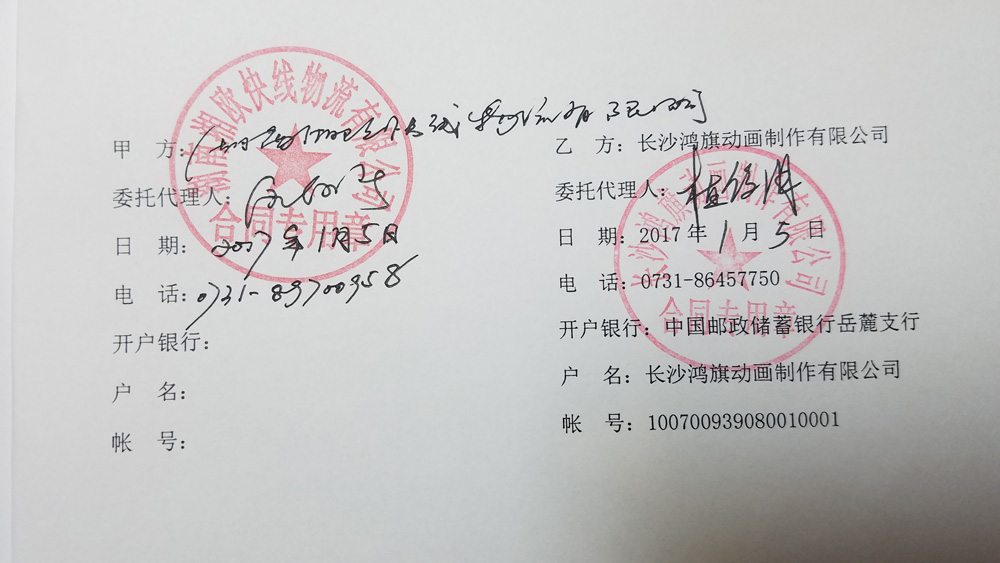 湖南湘欧快线物流有限公司
合同专用章
甲 方：湖南湘欧快线物流有限公司
委托代理人：
日 期：2017年1月5日
电 话：0731-89700958
开户银行：
户 名：
帐 号：
乙 方：长沙鸿旗动画制作有限公司
委托代理人：
日 期：2017年1月5日
电 话：0731-86457750
开户银行：中国邮政储蓄银行岳麓支行
户 名：长沙鸿旗动画制作有限公司
帐 号：100700939080010001
长沙鸿旗动画制作有限公司
合同专用章